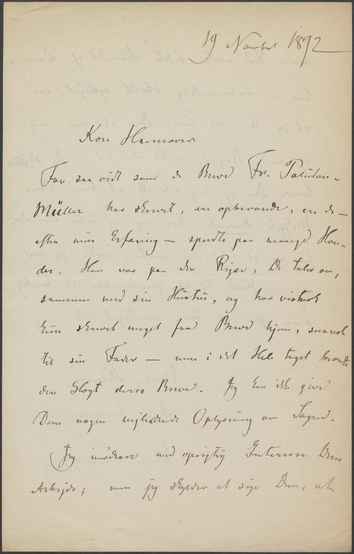 19 Novbr 1892
Kære
For saa vidt som de Breve Fr. Paludan-
Müller har skrevet, er opbevarede, er de —
efter min Erfaring — spredte paa mange Hæn-
der. Han var paa den Rejse, De taler om,
sammen med sin Hustru, og har vistnok
kun skrevet meget faa Breve hjem,
til sin Fader — men i det Hele taget
den Slags Breve. Jeg kan ikke give
Dem nogen vejledende Oplysning om Sagen.
Jeg med oprigtig Interesse Deres
Arbejde; men jeg skylder at sige Dem, at